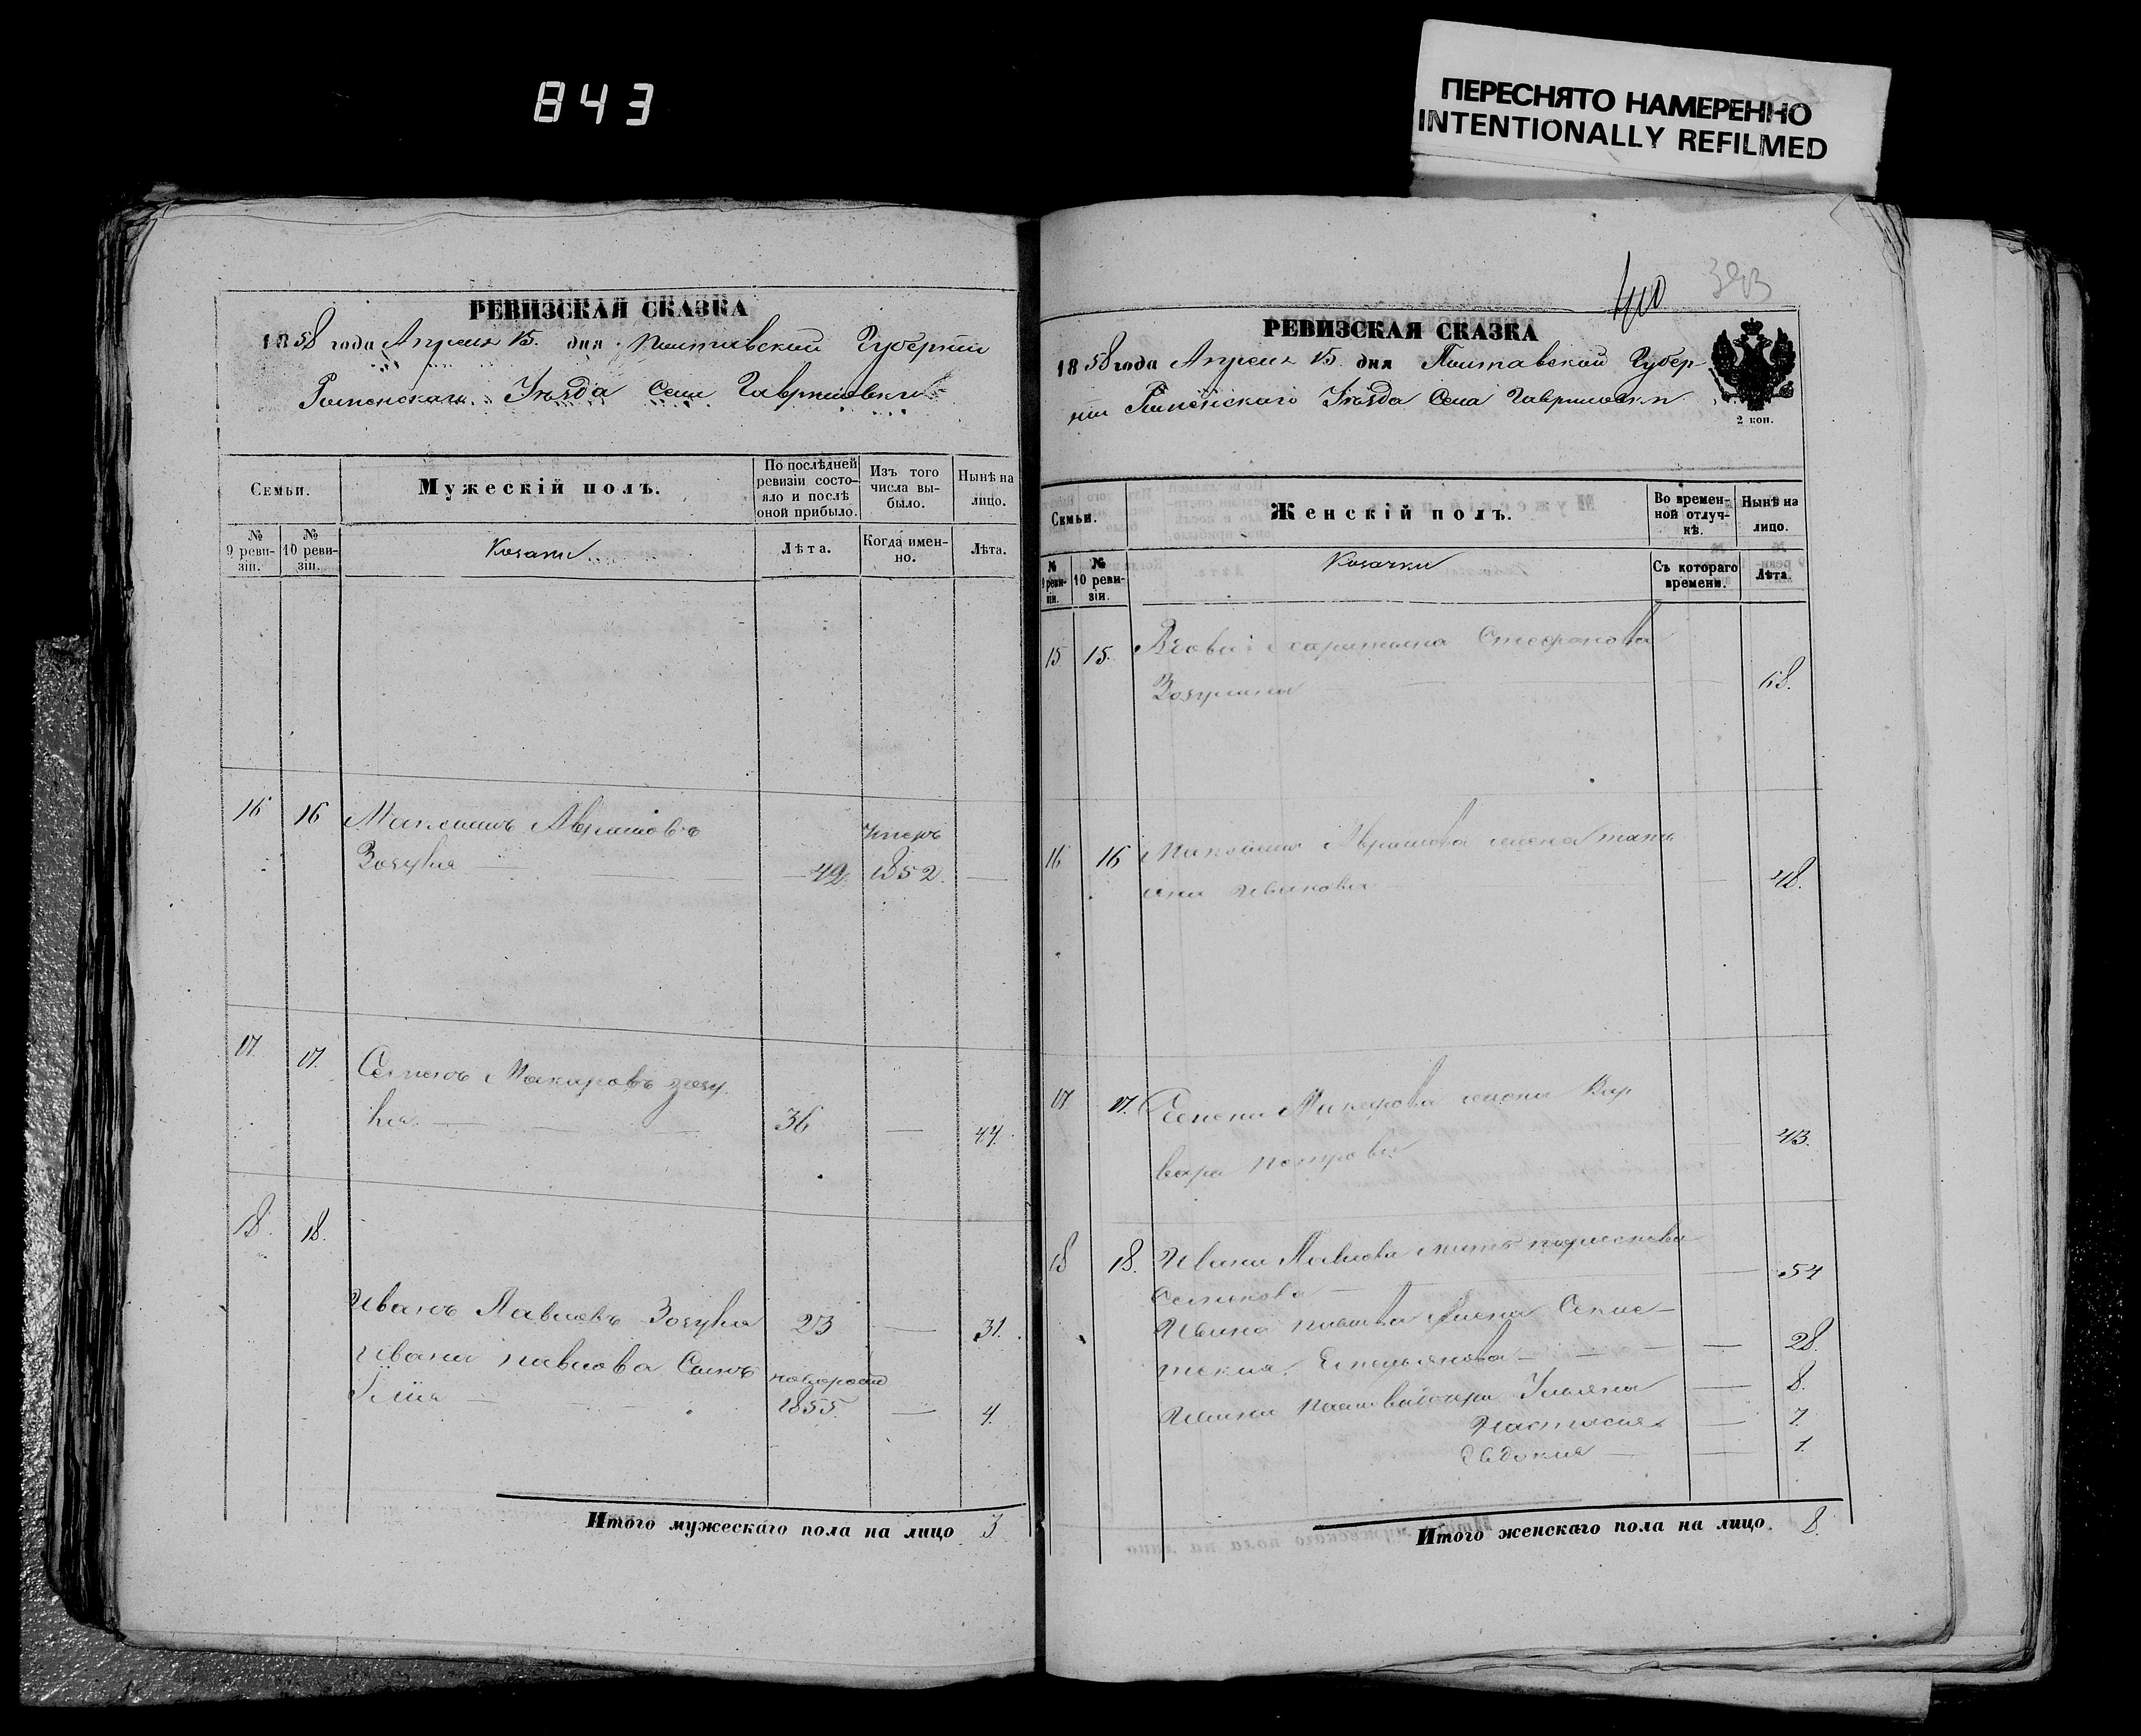 843
ПЕРЕСНЯТО НАМЕРЕННО
INTENTIONALLY REFILMED
РЕВИЗСКАЯ СКАЗКА
1858 года Апреля 15. дня Полтавской Губернии
Роменскаго Уезда Села Гавришовки
Семьи.
Мужескій полъ.
По послѣдней ревизіи состояло и послѣ оной прибыло.
Изъ того числа выбыло.
Нынѣ на лицо.
№ 9 ревизіи.
№ 10 ревизіи.
Козаки
Лѣта.
Когда именно.
Лѣта.
16 16 Максимъ Аврамовъ
Зозуля 49. умеръ 1852.
17. 17. Семенъ Макаровъ Зозу
ля 36 44.
18. 18.
Иванъ Павловъ Зозуля 23 31.
Ивана Павлова Сынъ новорожд
Илія 1855. 4.
Итого мужескаго пола на лицо 3
400 393
РЕВИЗСКАЯ СКАЗКА
1858 года Апреля 15. дня Полтавской Губер-
нии Роменскаго Уезда Села Гавришовки
2 коп.
Семьи.
Женскій полъ.
Во временной отлучкѣ.
Нынѣ на лицо.
№ 9 ревизіи.
№ 10 ревизіи.
Козачки
Съ котораго времени.
Лѣта.
15 15. Вдова Стефанова
68.
16 16 Максима Аврамова жена Татя
яна Иванова 48.
17 17. Семена Макарова жена Вар
вара Петрова 43.
18 18. Ивана Павлова мать
Семенова 54
Ивана Павлова жена
Емельянова 28.
Ивана Павлова дочери Ульяна 8.
Настасия 7.
Евдокия 1.
Итого женскаго пола на лицо. 8.